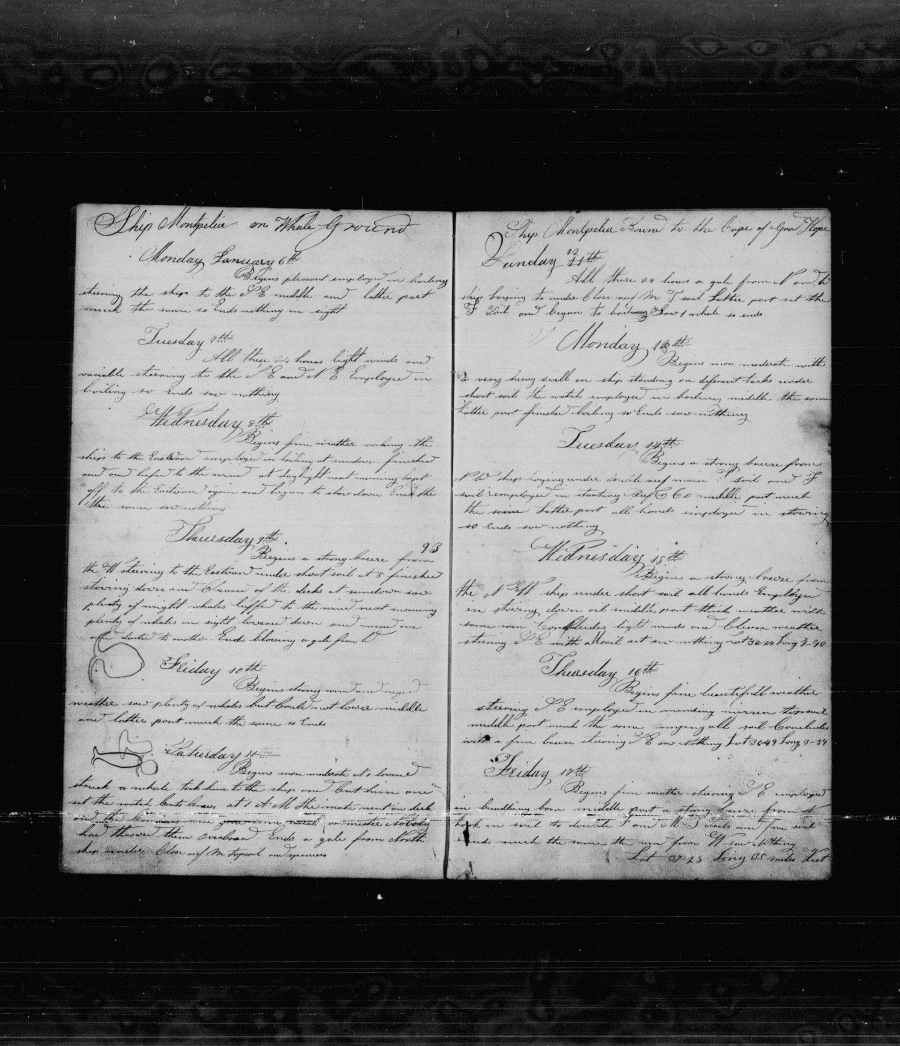 Ship Montpelier on Whale Ground
Monday January 6th
Begins pleasant employed in boiling
steering the ship to the S E middle and latter part
much the same so Ends nothing in sight
Tuesday 7th
All these 24 hours light winds and
variable steering to the S E and N E Employed in
boiling so Ends saw nothing
Wednesday 8th
Begins fine weather working the
ship to the Eastward employed in boiling at sundown finished
and and luffed to the wind at daylight next morning kept
off to the Eastward again and began to stow down Ends the
the same saw nothing
Thursday 9th
93
Begins a strong breeze from
the W steering to the Eastward under short sail at 5 finished
stowing down and Cleaned of the decks at sundown saw
plenty of right whales luffed to the wind next morning
plenty of whales in sight lowered down and
to another Ends blowing a gale from W
Friday 10th
Begins strong wind and rugged
weather saw plenty of whales but Could not lower middle
and latter part much the same so Ends
Saturday 11th
Begins more moderate at 1 lowered
struck a whale took him to the ship and Cut him
set the watch at 1 A M the mate went on deck
and the
had thrown them overboard Ends a gale from North
ship under Close reef M topsail and spencer
Ship Montpelier Bound to the Cape of Good Hope
Sunday 12th
All these 24 hours a gale from N and W
ship laying to under Close reef M T sail Latter part set the
F Sail and began to boiling Saw 1 whale so ends
Monday 13th
Begins more moderate with
a very heavy swell on ship standing on different tacks under
short sail the watch employed in boiling middle the same
Latter part finished boiling so Ends saw nothing
Tuesday 14th
Begins a strong breeze from
N W ship laying under double reef main T sail and F
sail employed in starting middle part much
the same Latter part all hands employed in stowing
so Ends saw nothing
Wednesday 15th
Begins a strong breeze from
the N W ship under short sail all hands Employed
in stowing down oil middle part thick weather with
some rain Concludes light winds and Clear weather
steering S E with all sail set saw nothing Lat 36-29 Long 2-40
Thursday 16th
Begins fine beautifull weather
steering S E employed in mending mizzen topsail
middle part much the same all sail Concludes
with a fine breeze steering S E saw nothing Lat 36-49 Long 3-37
Friday 17th
Begins fine weather steering S E employed
in bundling bone middle part a strong breeze from
took in sail to double F and M T Sails and Fore sail
Ends much the same the wind from W saw Nothing
Lat 37-23 Long 05 miles East